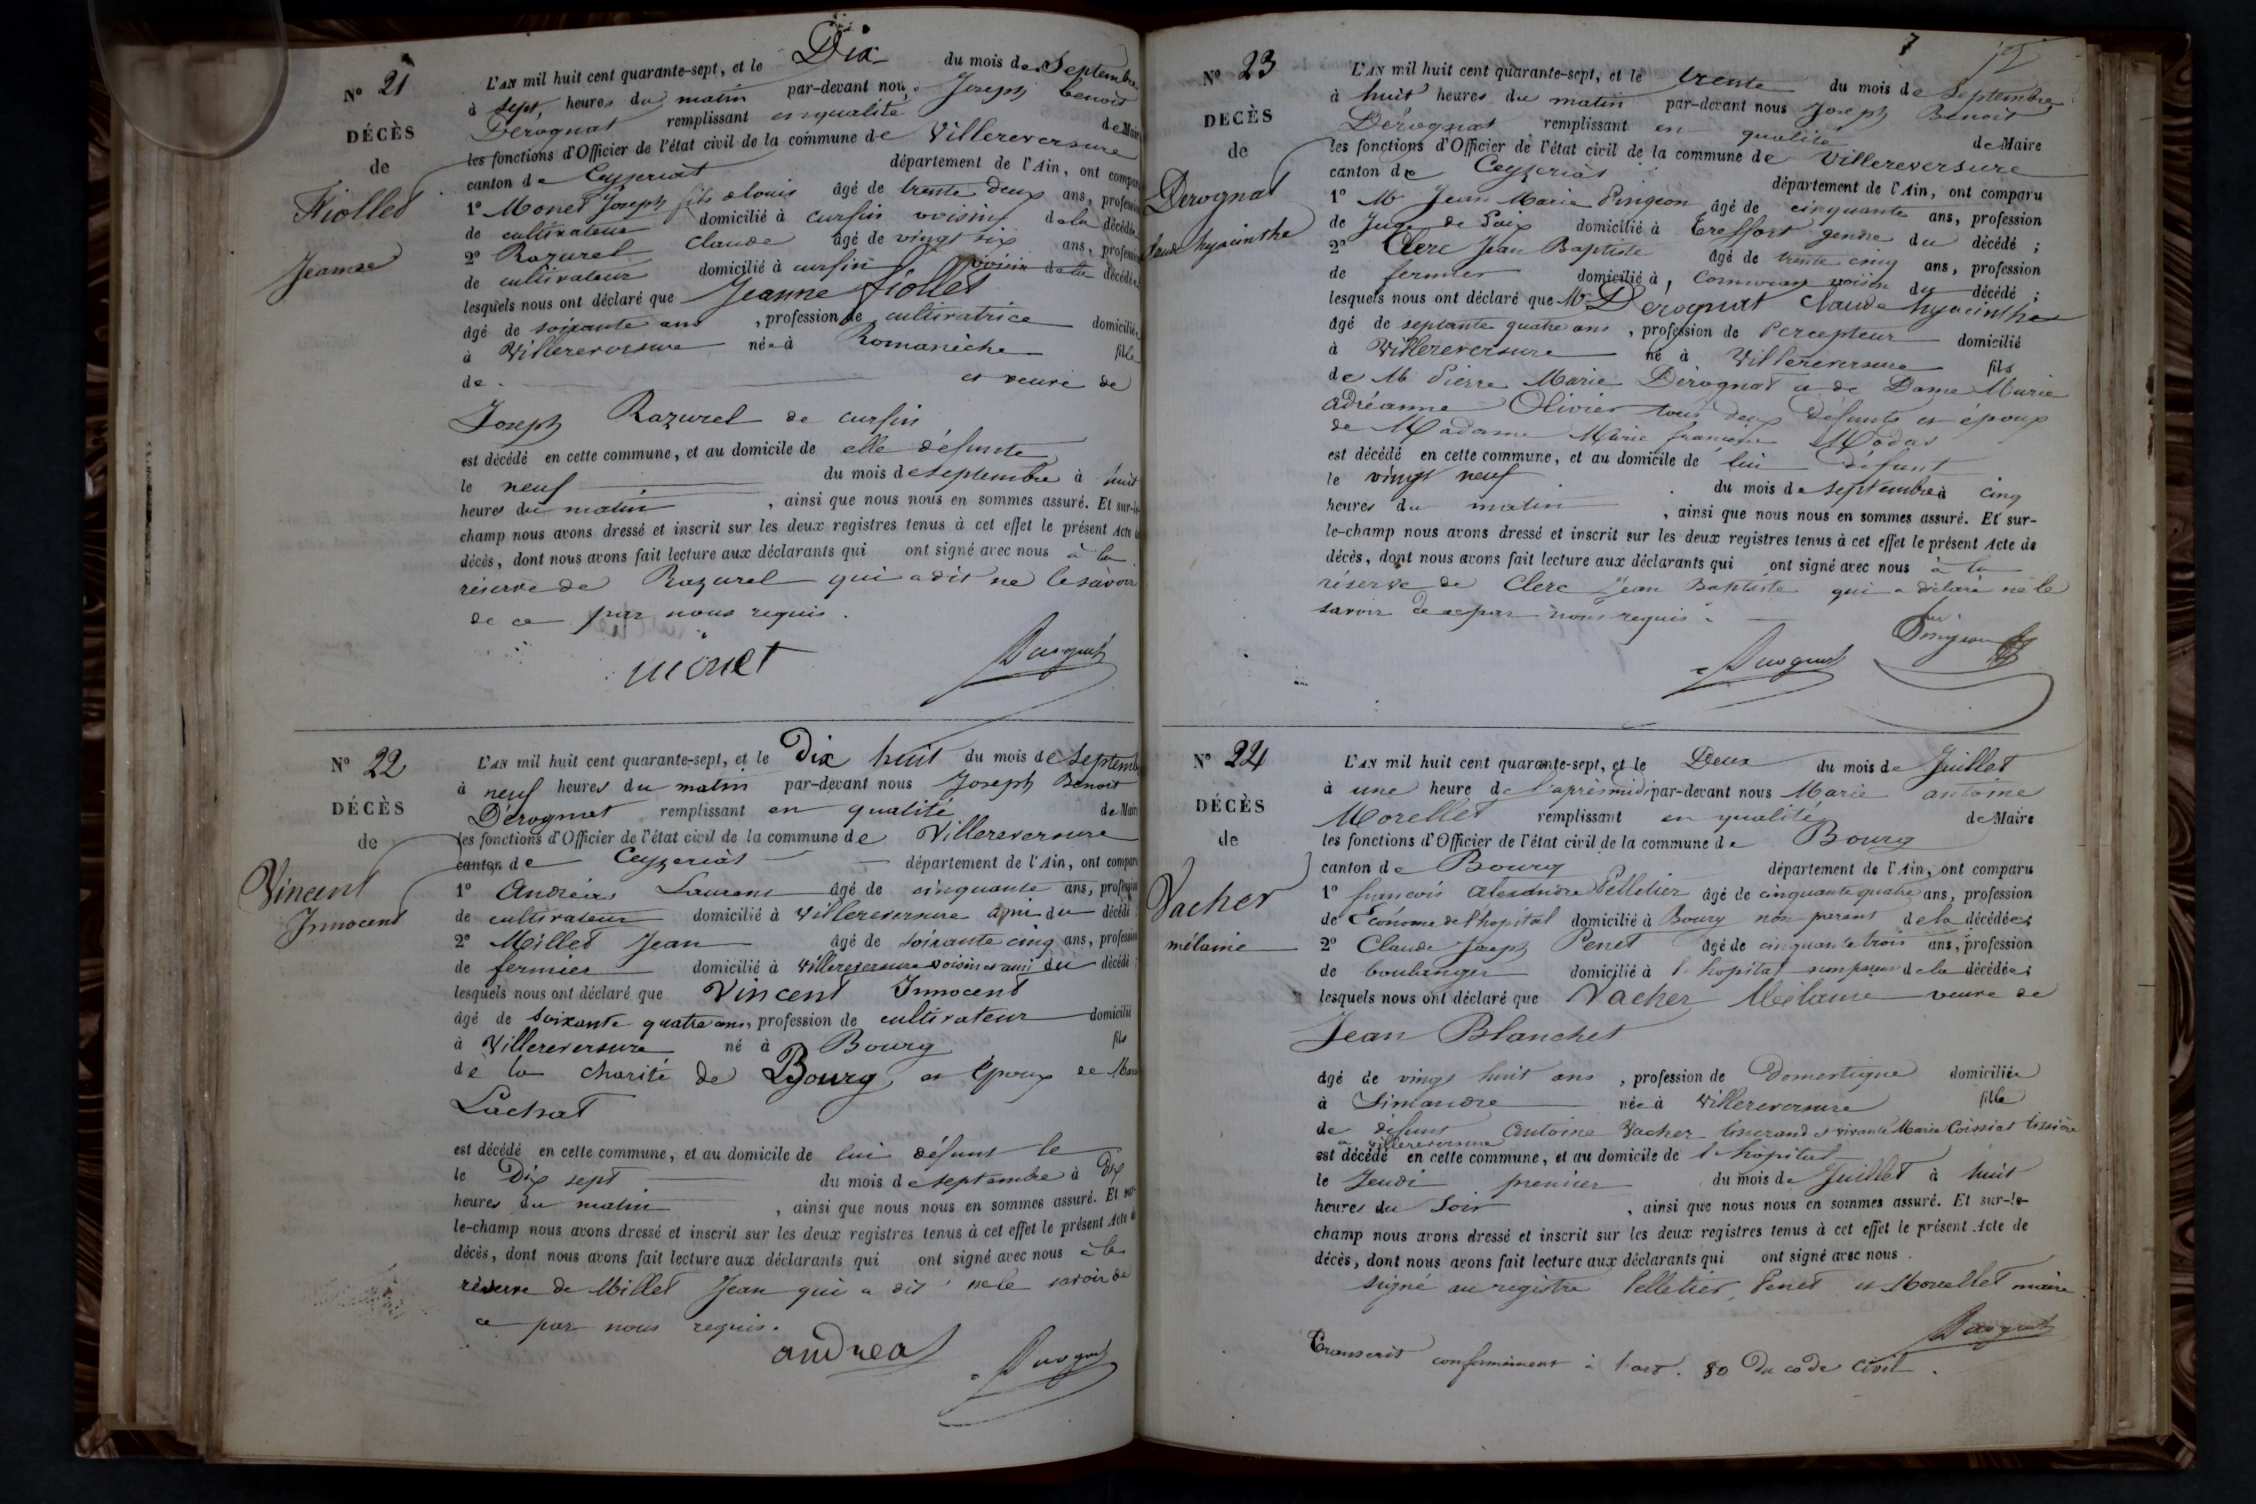 N° 21
DÉCÈS
de
Fiollet
Jeanne
L'AN mil huit cent quarante-sept, et le Dix du mois de Septembre
à sept heures du matin par-devant nous Joseph benoit
Dérognat remplissant en qualité de Maire
les fonctions d'Officier de l'état civil de la commune de Villereversure
canton de Ceyzeriat département de l'Ain, ont comparu
1° Monet Joseph fils de louis âgé de trente deux ans, profession
de cultivateur domicilié à curfin voisin de la décédée
2° Razurel Claude âgé de vingt six ans, profession
de cultivateur domicilié à curfin voisin de la décédée
lesquels nous ont déclaré que Jeanne fiollet
âgé de soixante ans, profession de cultivatrice domiciliée
à Villereversure née à Romanèche fille
de et veuve de
Joseph Razurel de curfin
est décédé en cette commune, et au domicile de elle défunte
le neuf du mois de septembre à huit
heures du matin, ainsi que nous nous en sommes assuré. Et sur-le-
champ nous avons dressé et inscrit sur les deux registres tenus à cet effet le présent Acte de
décès, dont nous avons fait lecture aux déclarants qui ont signé avec nous à la
réserve de Razurel qui a dit ne le savoir
de ce par nous requis.
monet
Dérognat
N° 22
DÉCÈS
de
Vincent
Innocent
L'AN mil huit cent quarante-sept, et le Dix huit du mois de Septemb
à neuf heures du matin par-devant nous Joseph Benoit
Dérognat remplissant en qualité de Maire
les fonctions d'Officier de l'état civil de la commune de Villereversure
canton de Ceyzeriat département de l'Ain, ont comparu
1° Andréas Laurent âgé de cinquante ans, profession
de cultivateur domicilié à Villereversure ami du décédé
2° Millet Jean âgé de soixante cinq ans, profession
de fermier domicilié à Villereversure voisin et ami du décédé
lesquels nous ont déclaré que Vincent Innocent
âgé de soixante quatre ans, profession de cultivateur domicilié
à Villereversure né à Bourg fils
de la charité de Bourg, et époux de Marie
Lachat
est décédé en cette commune, et au domicile de lui défunt le
le Dix sept du mois de septembre à Dix
heures du matin, ainsi que nous nous en sommes assuré. Et sur-
le-champ nous avons dressé et inscrit sur les deux registres tenus à cet effet le présent Acte de
décès, dont nous avons fait lecture aux déclarants qui ont signé avec nous à la
réserve de Millet Jean qui a dit ne le savoir de
ce par nous requis.
andrea
Dérognat
7
N° 23
DECÈS
de
Derognat
Claude hyacinthe
L'AN mil huit cent quarante-sept, et le trente du mois de Septembre
à huit heures du matin par-devant nous Joseph Benoit
Dérognat remplissant en qualité de Maire
les fonctions d'Officier de l'état civil de la commune de Villereversure
canton de Ceyzeriat département de l'Ain, ont comparu
1° Mr Jean Marie Pingeon âgé de cinquante ans, profession
de Juge de Paix domicilié à Treffort gendre du décédé ;
2° Clerc Jean Baptiste âgé de trente cinq ans, profession
de fermier domicilié à, voisin du décédé ;
lesquels nous ont déclaré que Mr Derognat Claude hyacinthe
âgé de septante quatre ans, profession de Percepteur domicilié
à Villereversure né à Villereversure fils
de Mr Pierre Marie Dérognat et de Dame Marie
adréanne Olivier tous deux défunts et époux
de Madame Marie françoise Modas
est décédé en cette commune, et au domicile de lui défunt
le vingt neuf du mois de septembre à cinq
heures du matin, ainsi que nous nous en sommes assuré. Et sur-
le-champ nous avons dressé et inscrit sur les deux registres tenus à cet effet le présent Acte de
décès, dont nous avons fait lecture aux déclarants qui ont signé avec nous à la
réserve de Clerc Jean Baptiste qui a déclaré ne le
savoir de ce par nous requis.
Pingeon
Dérognat
N° 24
DÉCÈS
de
Vacher
mélanie
L'AN mil huit cent quarante-sept, et le Deux du mois de Juillet
à une heure de l'après midi par-devant nous Marie antoine
Morellet remplissant en qualité de Maire
les fonctions d'Officier de l'état civil de la commune de Bourg
canton de Bourg département de l'Ain, ont comparu
1° françois alexandre Pelletier âgé de cinquante quatre ans, profession
de Économe de l'hopital domicilié à Bourg non parent de la décédée ;
2° Claude Joseph Penet âgé de cinquante trois ans, profession
de boulanger domicilié à l'hopital non parent de la décédée ;
lesquels nous ont déclaré que Vacher Mélanie veuve de
Jean Blanchet
âgé de vingt huit ans, profession de Domestique domiciliée
à Simandre née à Villereversure fille
de défunt Antoine Vacher tisserand et vivante Marie Coissiat tissière
à Villereversure
est décédé en cette commune, et au domicile de l'hopital
le Jeudi premier du mois de Juillet à huit
heures du Soir, ainsi que nous nous en sommes assuré. Et sur-le-
champ nous avons dressé et inscrit sur les deux registres tenus à cet effet le présent Acte de
décès, dont nous avons fait lecture aux déclarants qui ont signé avec nous.
signé au registre Pelletier, Penet et Morellet maire.
Dérognat
Transcrit conformément à l'art. 80 du code civil.